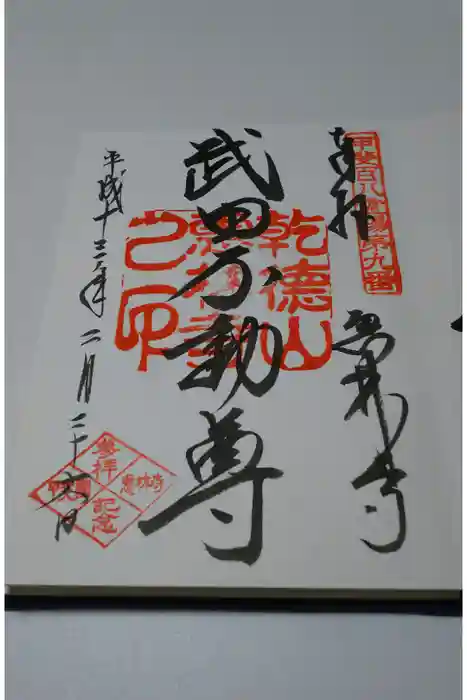 甲斐百八霊場第九番
奉拝
恵林寺
武田不動尊
乾德山
恵林寺
之印
平成十三年二月二十六日
参拝
記念
恵林寺